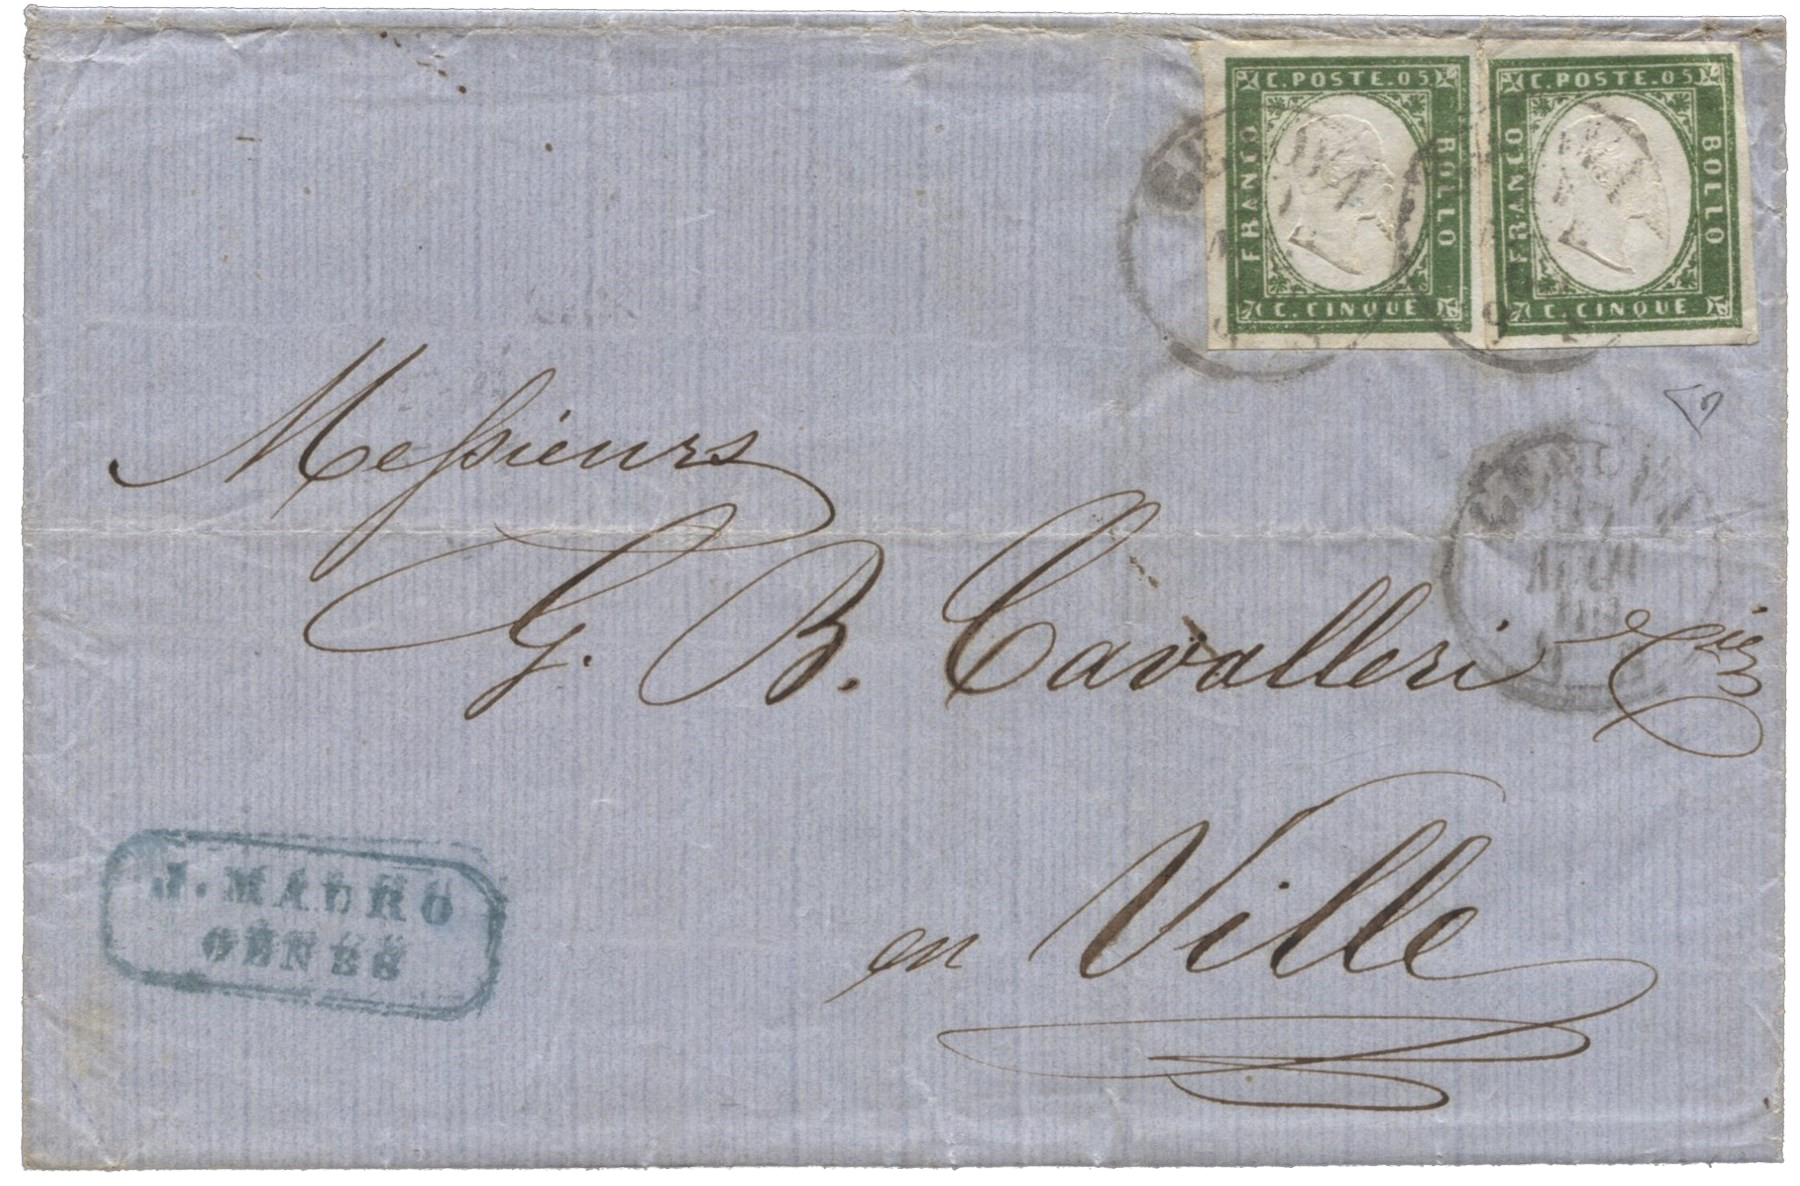 C. POSTE. 05
FRANCO
BOLLO
C. CINQUE
C. POSTE. 05
FRANCO
BOLLO
C. CINQUE
Messieurs
G. B. Cavalleri & Cie
en Ville
J. MAURO
GÊNES